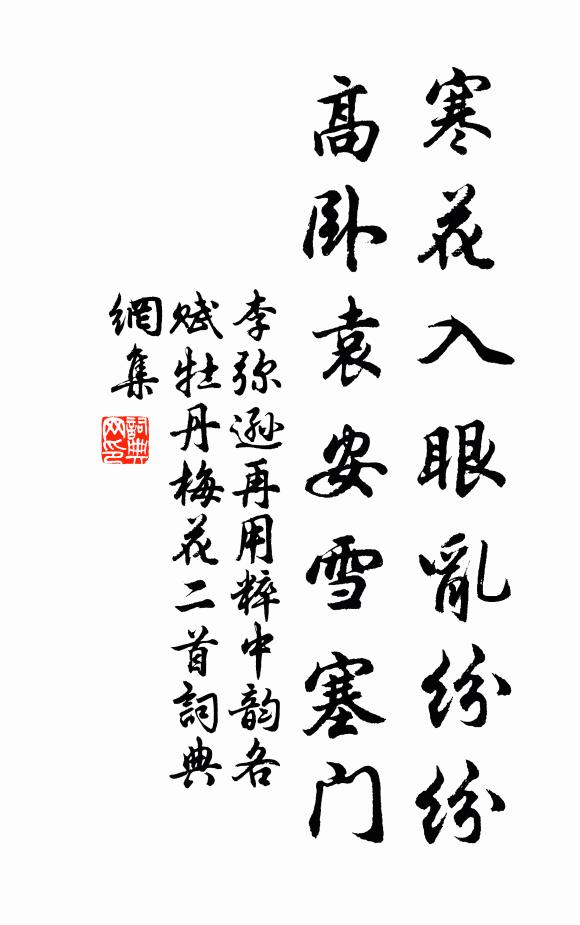 寒花入眼亂紛紛
高卧袁安雪塞门
李弥遜再用粹中韵各
赋牡丹梅花二首詞典
網集
詞典网印